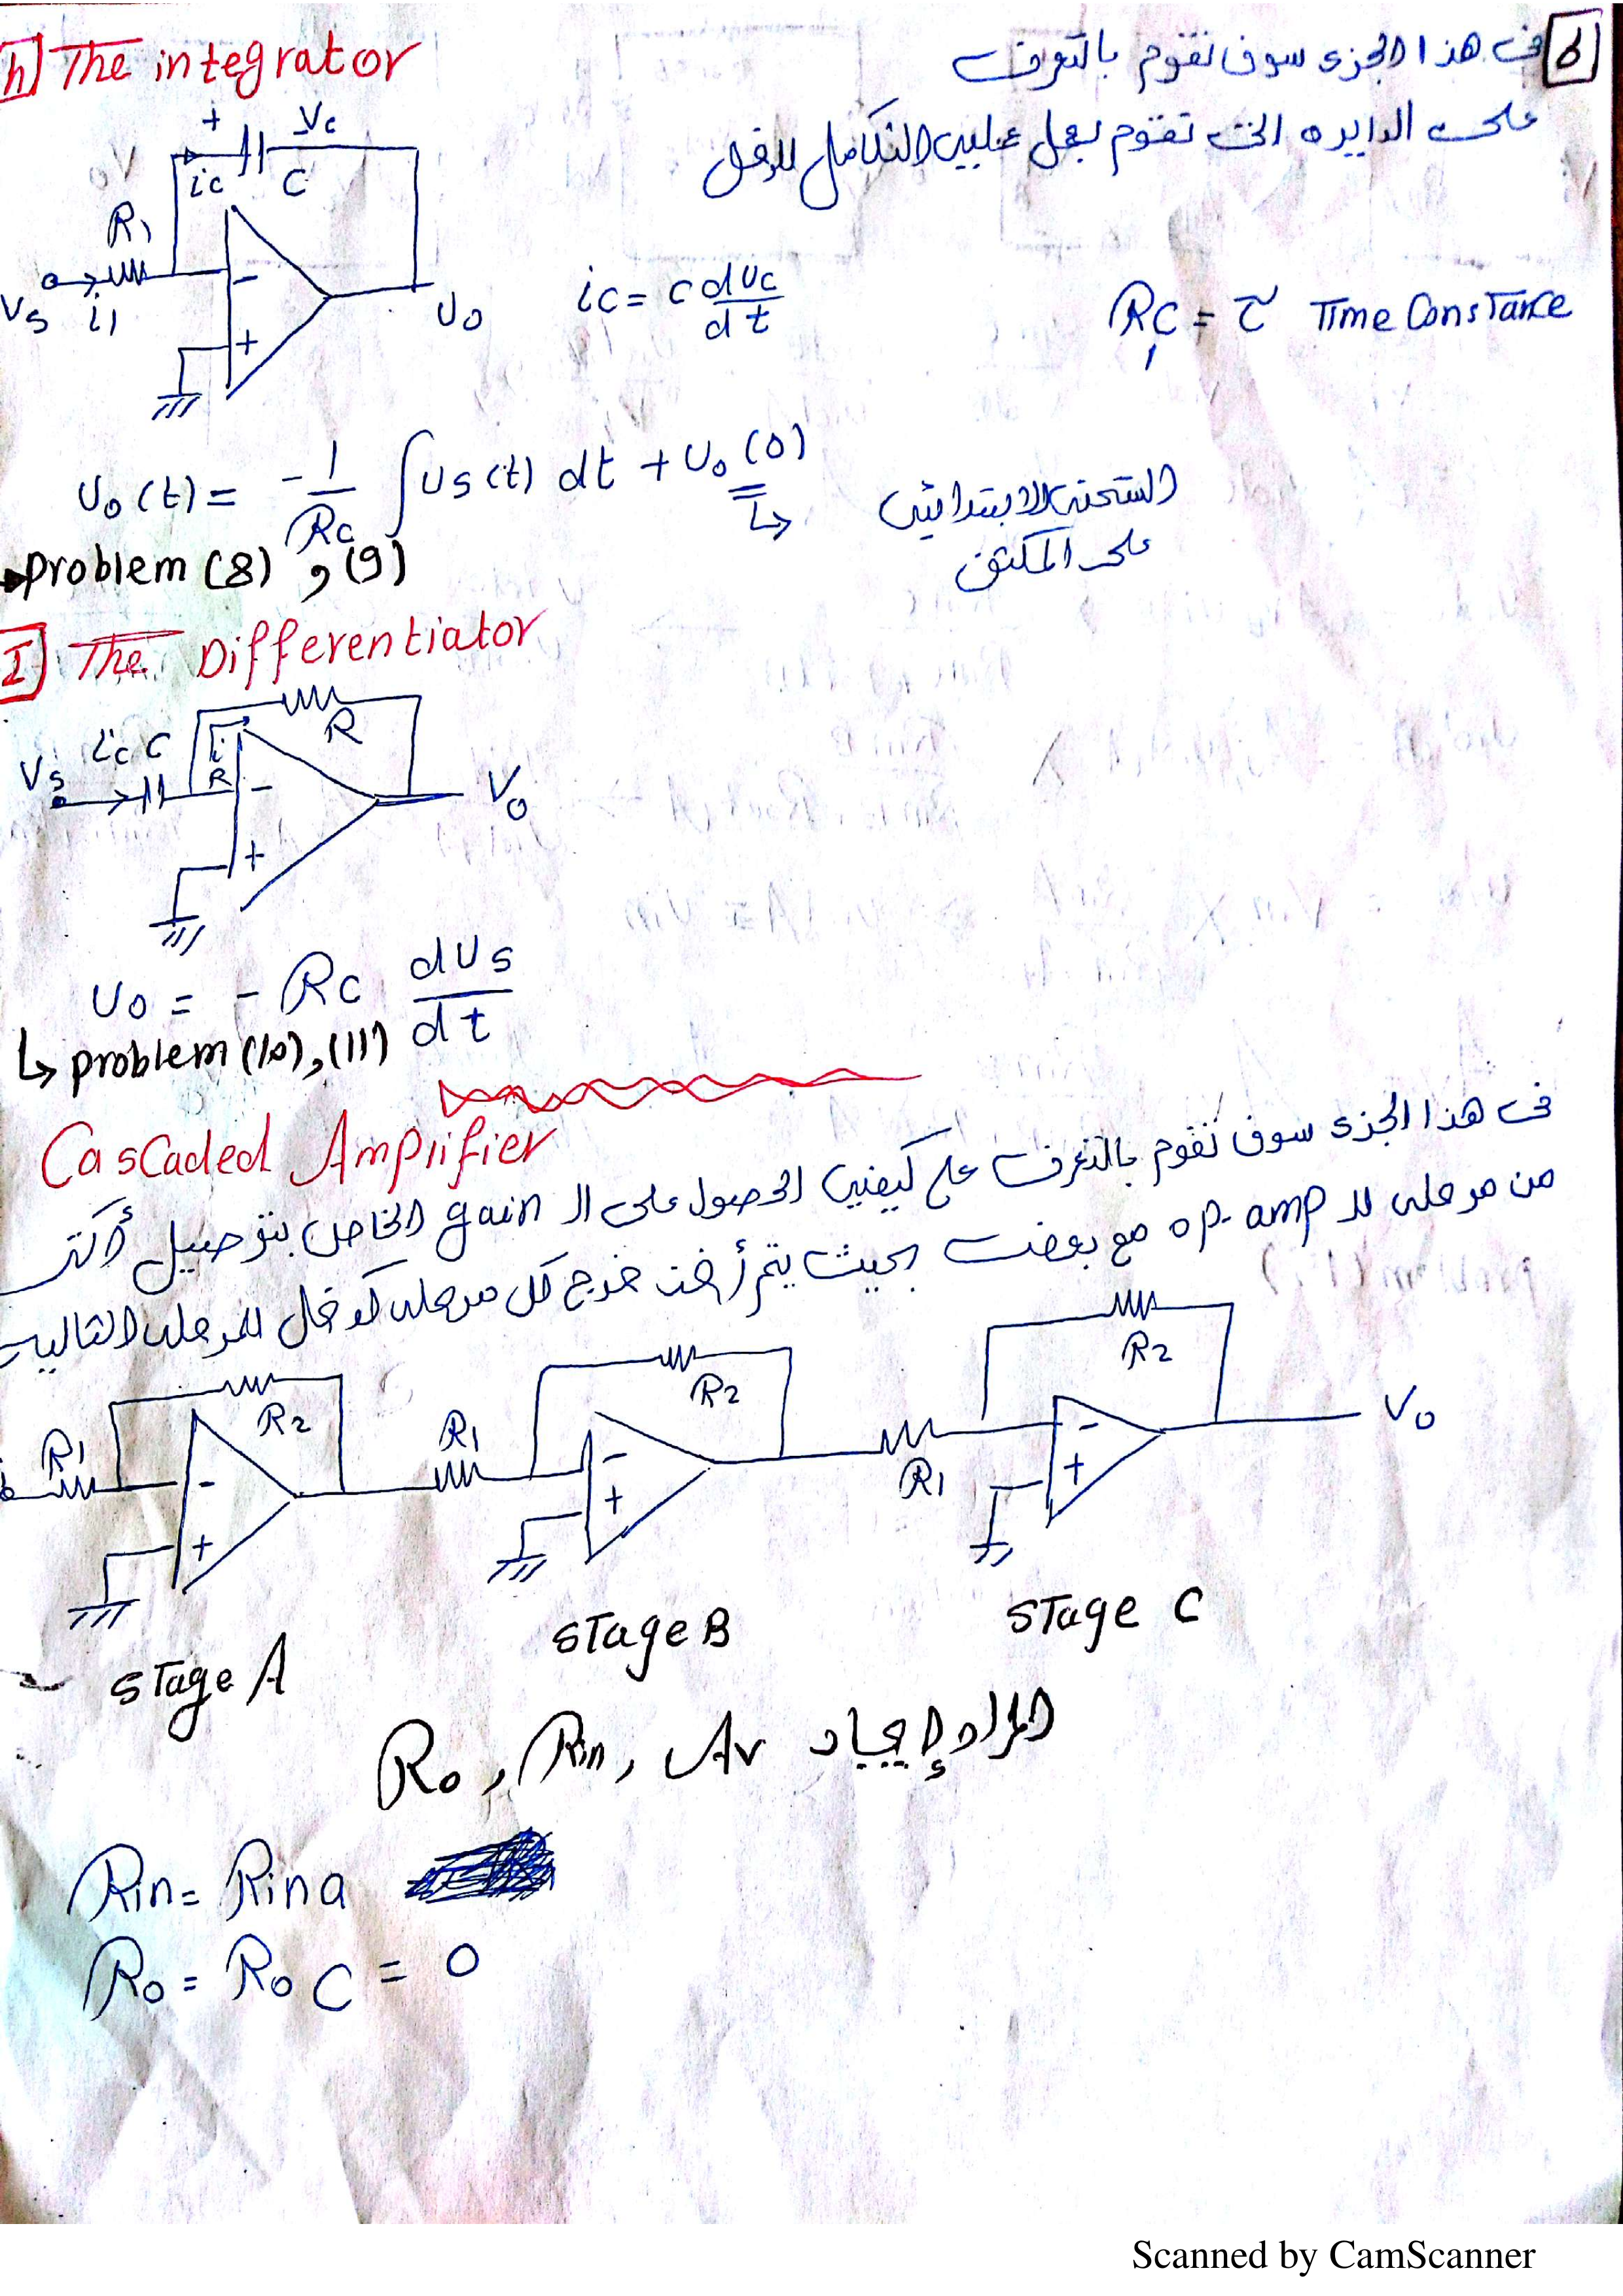 h The integrator
في هذا الجزئ سوف نقوم بالتعرف
على الدايره التى تقوم بعمل عمليه التكامل للدخل
+ Vc -
ic C
R1
Vs i1
-
+
Vo
ic = c dvc/dt
R1C = τ Time Constance
Vo(t) = -1/RC ∫Vs(t) dt + Vo(0)
↳ الشحنه الابتدائيه
على المكثف
problem (8) , (9)
I The Differentiator
R
Vs ic C iR
-
+
Vo
Vo = - RC dVs/dt
↳ problem (10), (11)
Cascaded Amplifier
فى هذا الجزئ سوف نقوم بالتعرف على كيفيه الحصول على ال gain الخاص بتوصيل أكثر
من مرحله لل op-amp مع بعض بحيث يتم أخذ خرج كل مرحله كدخل للمرحله التاليه
R1 R2 - +
R1 R2 - +
R1 R2 - +
Vo
stage A
stage B
stage C
المراد إيجاد Ro, Rin, Av
Rin = Rina
Ro = RoC = 0
Scanned by CamScanner